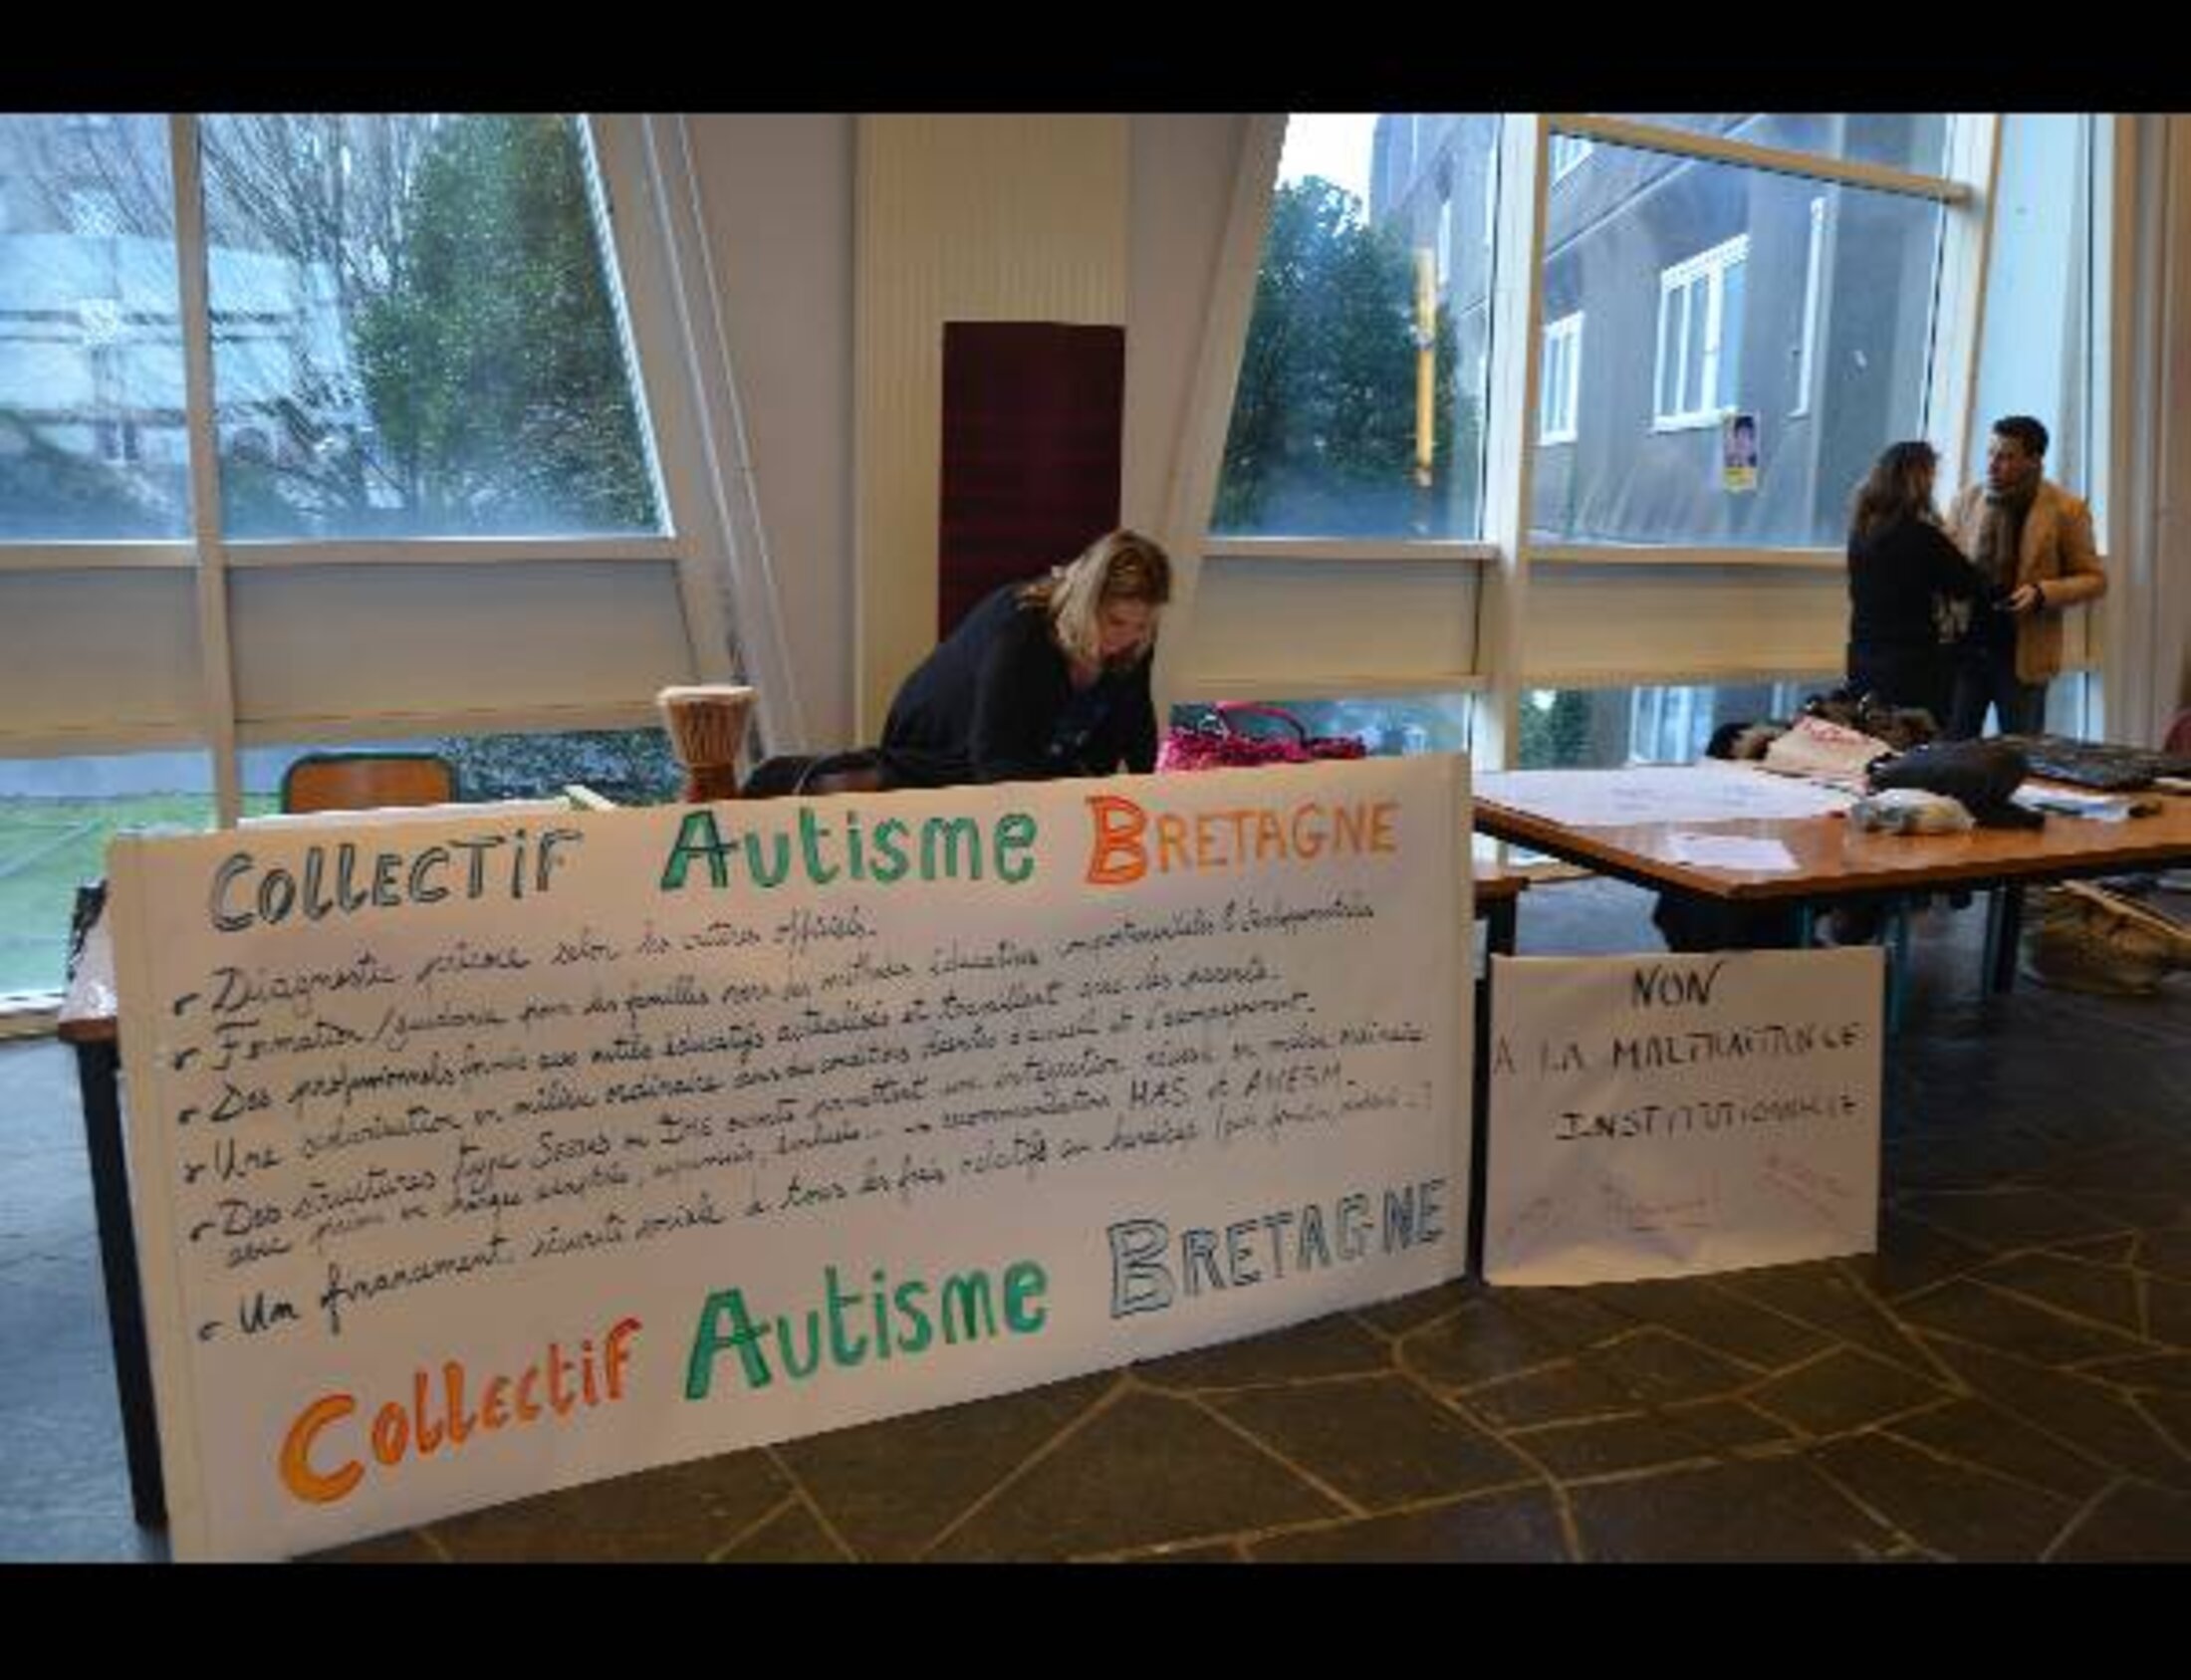 COLLECTIF AUtisme BRETAGNE
- Diagnostic précoce selon les critères officiels.
- Formation/guidance pour les familles vers les méthodes éducatives comportementales &
- Des professionnels formés aux outils éducatifs actualisés et travaillant avec les parents.
- Une scolarisation en milieu ordinaire dans des conditions d'accueil et d'accompagnement.
- Des structures type Sessad ou IME permettant une intégration réussie en milieu ordinaire
avec prise en charge recommandation HAS et ANESM.
- Un financement sécurité sociale à tous les frais relatifs au handicap
Collectif AUtisme BRETAGNE
NON
A LA MALTRAITANCE
INSTITUTIONNELLE